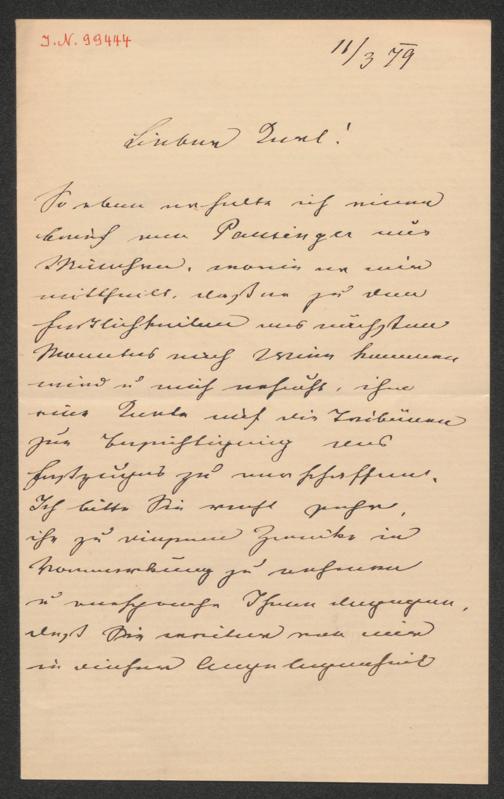 I.N. 99444
11/3 79
Lieber Karl!
So eben erhalte ich einen
Brief von Pausinger aus
München, worin er mir
mittheilt, daß er zu den
Festlichkeiten des nächsten
Monates nach Wien kommen
wird u mich ersucht, ihm
eine Karte auf die Tribünen
zur Besichtigung des
Festzuges zu verschaffen.
Ich bitte Sie recht sehr,
ihn zu diesem Zwecke in
Vormerkung zu nehmen
u verspreche Ihnen dagegen,
daß Sie weiter von mir
in dieser Angelegenheit